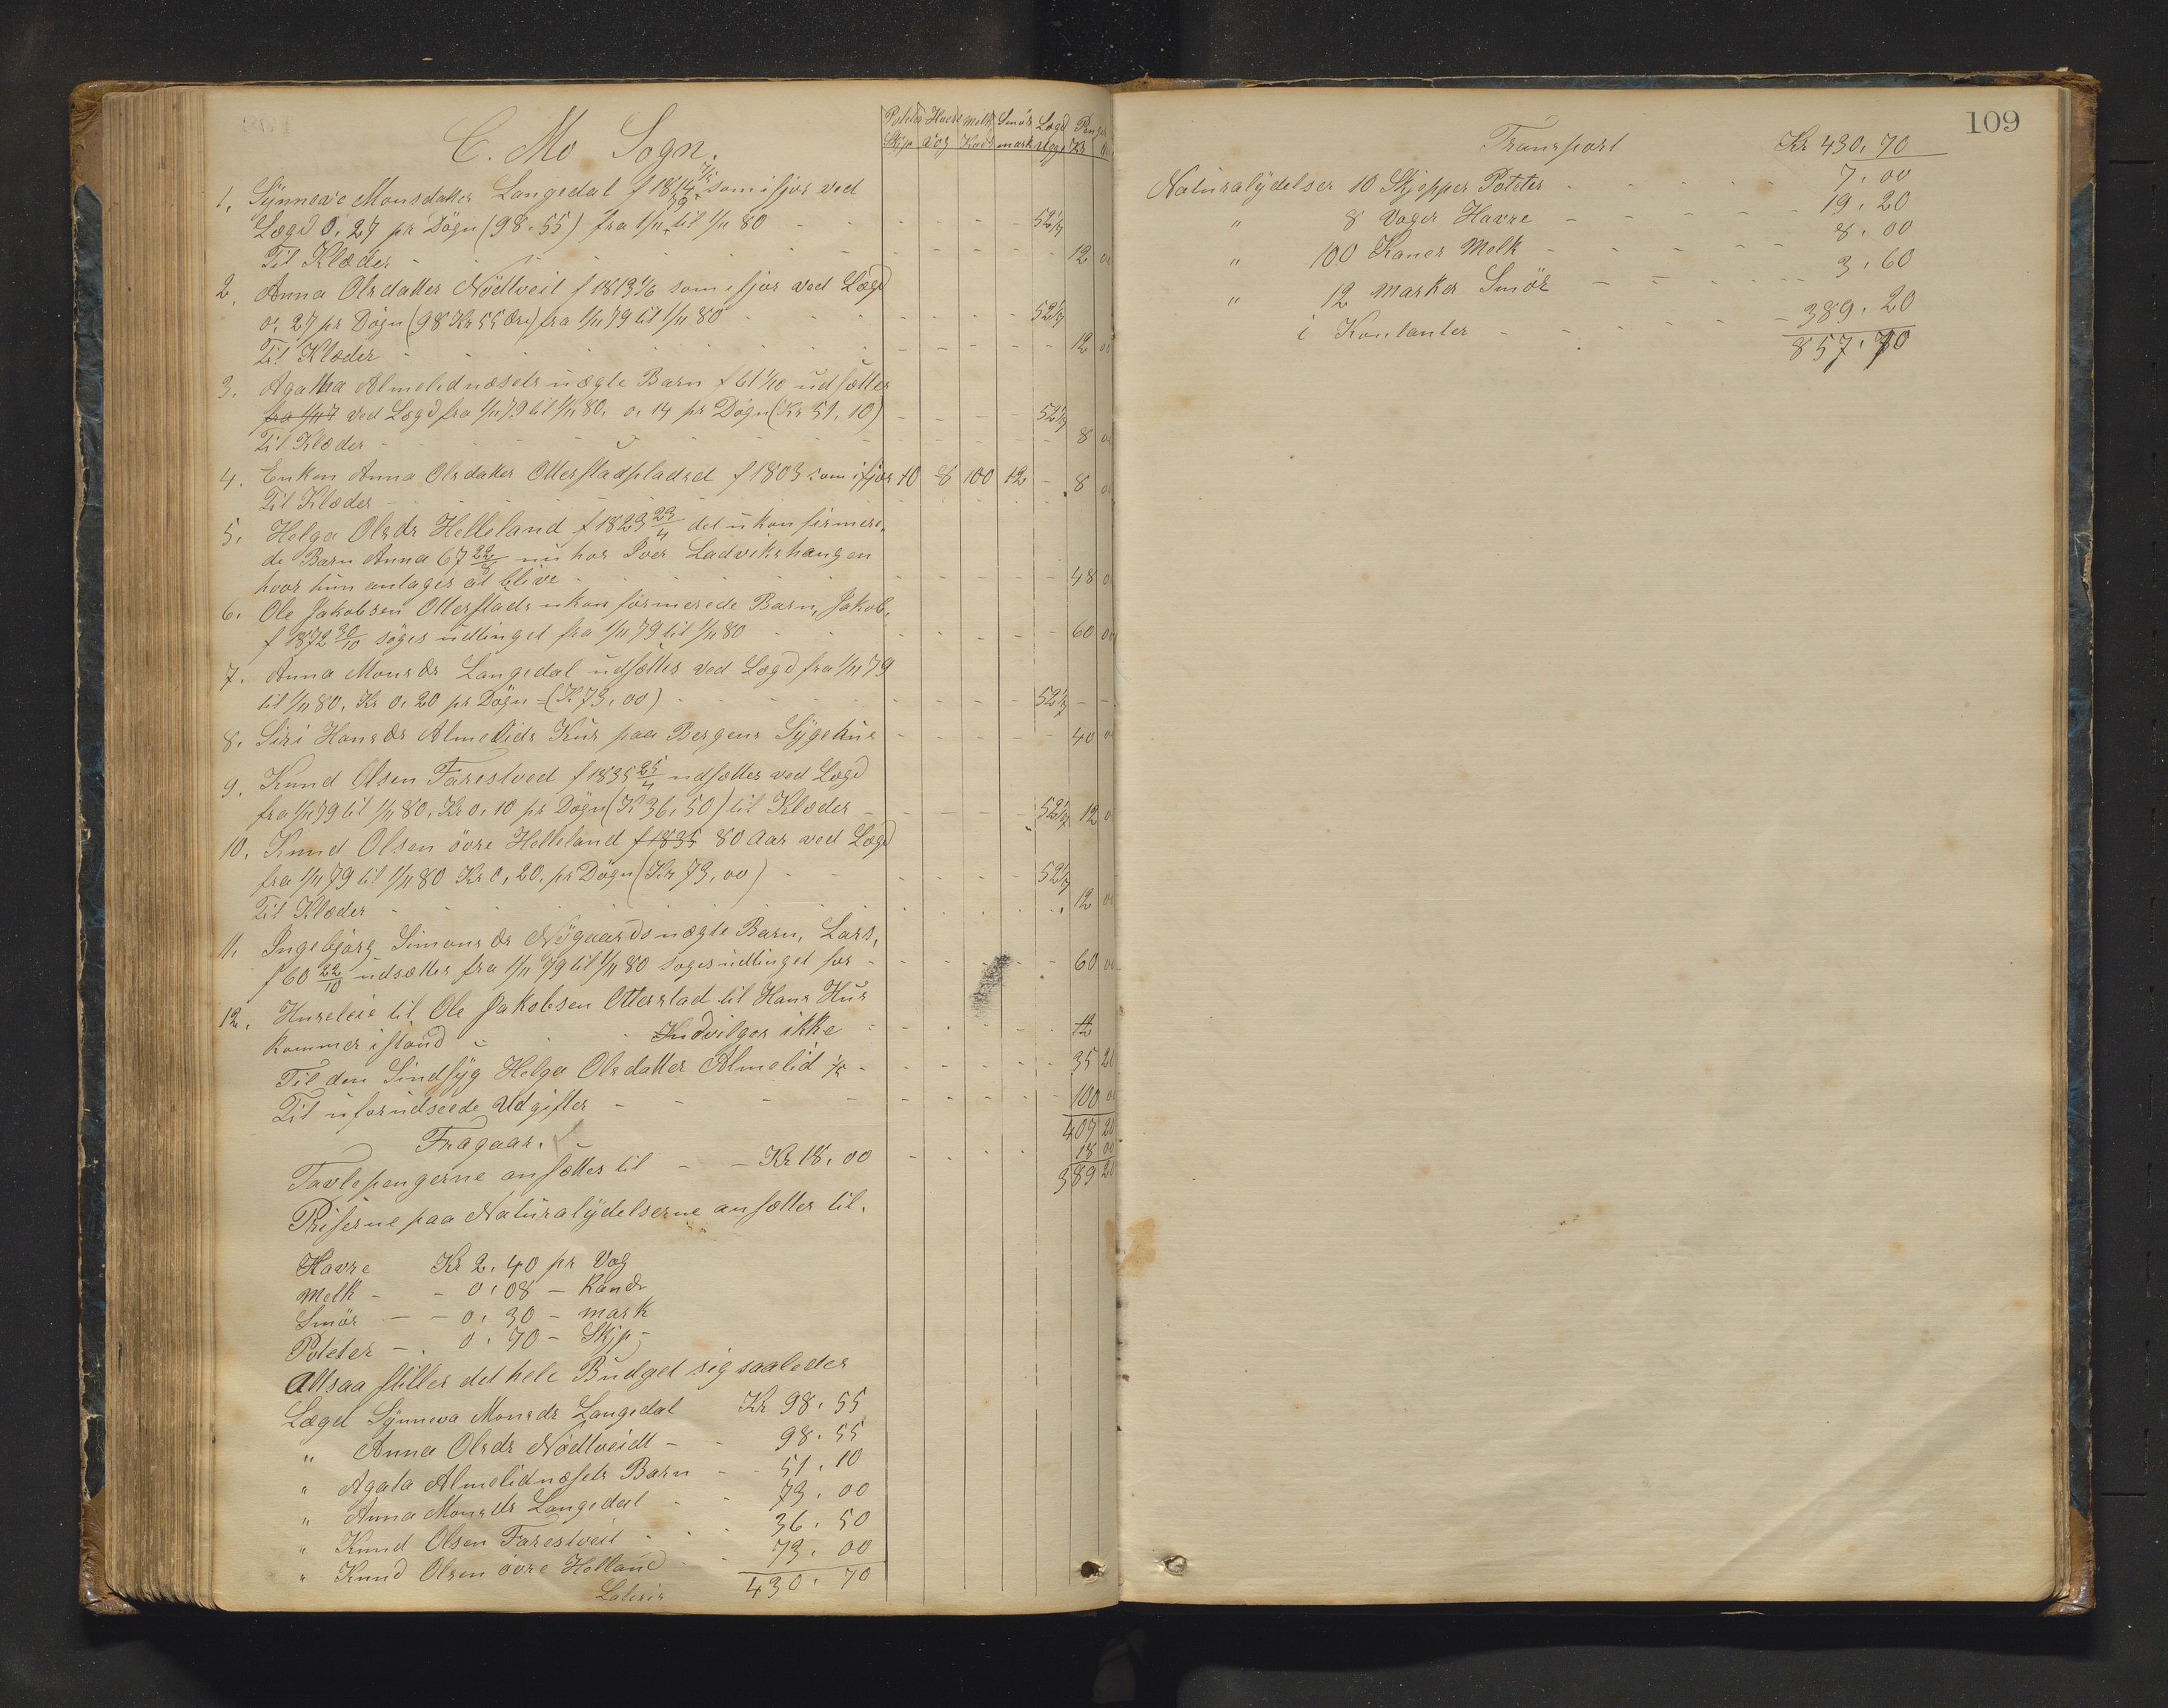 C. Mo Sogn.
Poteter Havre Melk Smör Lægd Penger
Skjp Vog Kand mark Uger Kr Ør
1, Synneve Monsdatter Langedal f 1814 som ifjor ved
Lægd 0,27 pr Dögn (98.55) fra 1/11 79 til 1/11 80 - - - - - 52 1/7
Til Klæder - - - - - 12 00
2, Anna Olsdatter Nödtveit f 1813 1/6 som ifjor ved Lægd
0,27 pr Dögn (98 Kr 55 Øre) fra 1/11 79 til 1/11 80 - - - - 52 1/7
Til Klæder - - - - - 12 00
3. Agatha Almelidnæsets uægte Barn f 61 1/10 udsættes
fra 1/11 7 ved Lægd fra 1/11 79 til 1/11 80. 0,14 pr Dögn (Kr 51,10) - - - - 52 1/7
Til Klæder - - - - - 8 00
4. Enken Anna Olsdatter Otterstadpladset f 1803 som ifjor 10 8 100 12 -
Til Klæder - - - - - 8 00
5. Helga Olsdr Helleland f 1823 23/4 det ukonfirmere-
de Barn Anna 67 22/8 nu hos Iver Ladvikshaugen
hvor hun antages at blive - - - - - 48 00
6. Ole Jakobsen Otterstads ukonfirmerede Barn, Jakob,
f 1872 30/10 söges udtinget fra 1/11 79 til 1/11 80 - - - - 60 00
7. Anna Monsdr Langedal udsættes ved Lægd fra 1/11 79
til 1/11 80, Kr 0,20 pr Dögn - (Kr 73,00) - - - - 52 1/7 - -
8. Siri Hansdr Almelids Kur paa Bergens Sygehus - - - - 40 00
9. Knud Olsen Farestved f 1835 25/4 udsættes ved Lægd
fra 1/11 79 til 1/11 80, Kr 0,10 pr Dögn (Kr 36,50) til Klæder - - - - 52 1/7 12 00
10. Knud Olsen övre Helleland f 1835 80 Aar ved Lægd
fra 1/11 79 til 1/11 80 Kr 0,20. pr Dögn (Kr 73,00) - - - - 52 1/7
Til Klæder - - - - - 12 00
11. Ingebjörg Simonsdr Nygaards uægte Barn, Lars,
f 60 22/10 udsættes fra 1/11 79 til 1/11 80 söges udtinget for - - - - 60 00
12. Husleie til Ole Jakobsen Otterstad til Hans Hus
kommer istand - - Indvilges ikke - - - - 12
Til den Sindsyg Helga Olsdatter Almelid 1/5 - - - - 35 20
Til uforudseede Udgifter - - - - - 100 00
407 20
Fragaar.
Tavlepengerne ansættes til - - Kr 18,00 - - - - 18 00
389 20
Priserne paa Naturalydelserne ansættes til.
Havre Kr 2.40 pr Vog
Melk - - 0,08 - Kande
Smör - - 0,30 - mark
Poteter - . 0,70 - Skjp -
Altsaa stiller det hele Budget sig saaledes
Lægd Synneva Monsdr Langedal Kr 98,55
" Anna Olsdr Nödtveidt - - 98.55
" Agata Almelidnæsets Barn - - 51.10
" Anna Monsdr Langedal - - 73.00
" Knud Olsen Farestveit - - - 36.50
" Knud Olsen övre Helland - - 73.00
Lateris 430.70
109
Transport Kr 430,70
Naturalydelser 10 Skjepper Poteter - - - - - 7.00
" 8 Voger Havre - - - - - 19.20
" 100 Kander Melk - - - - - 8.00
" 12 Marker Smör - - - - - 3.60
i Kontanter - - - - - 389.20
857.70